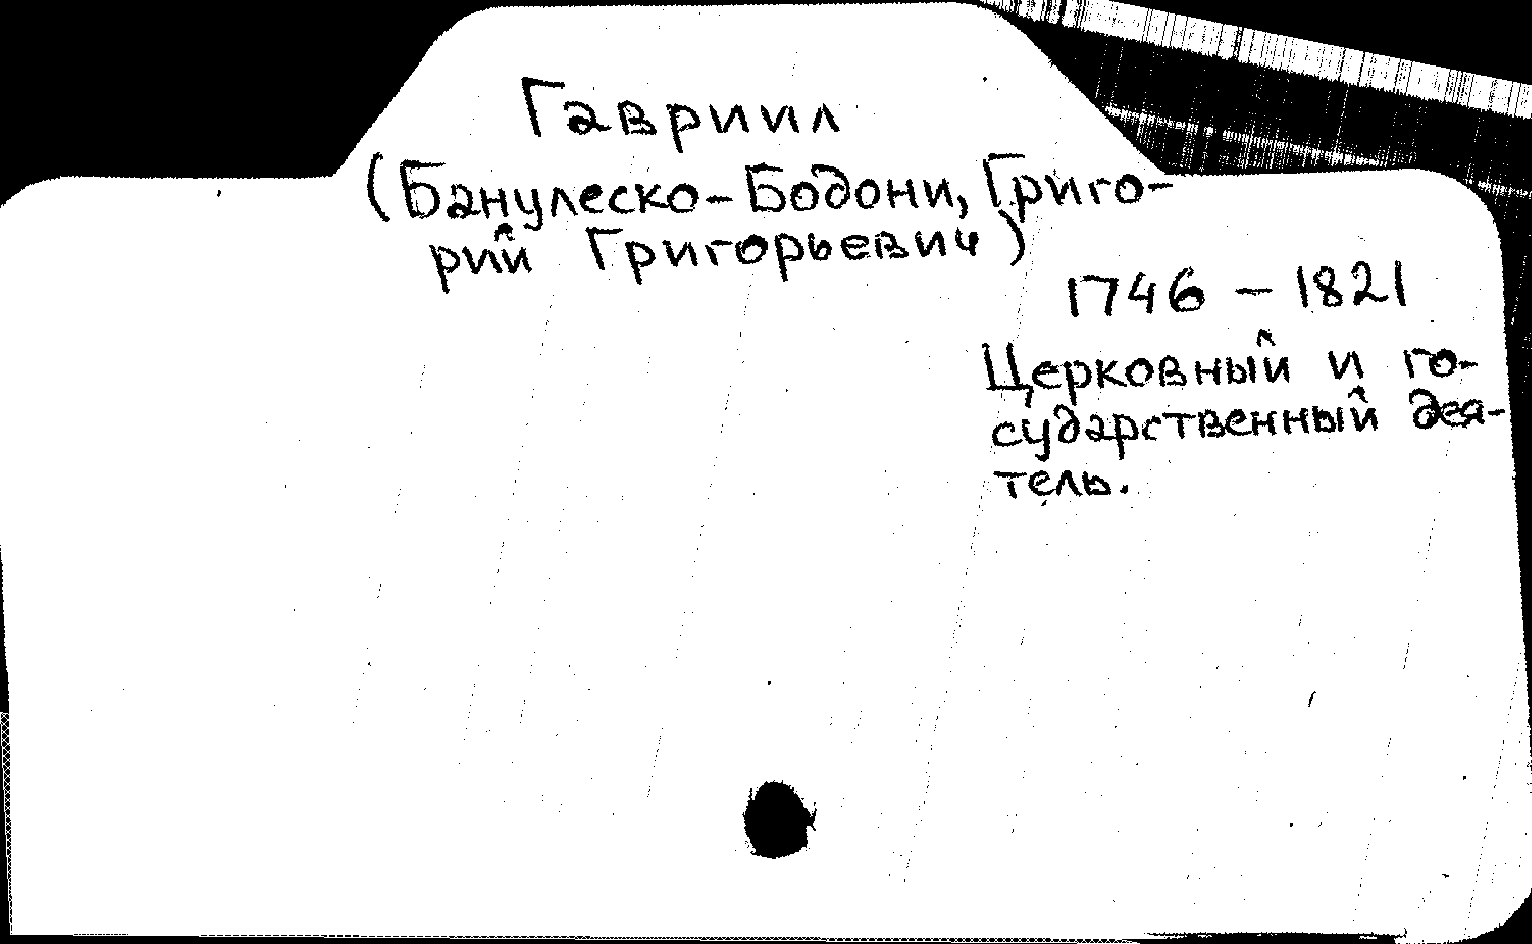 Гавриил
(Банулеско-Бодони, Григо-
рий Григорьевич)
1746 – 1821
Церковный и го-
сударственный дея-
тель.